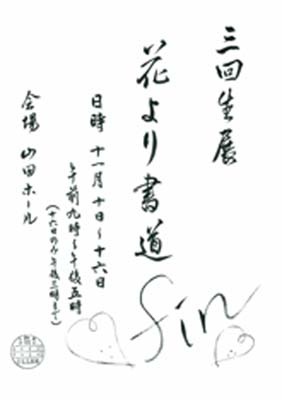 三回生展
花より書道
fin
日時 十一月十日〜十六日
午前九時〜午後五時
(十六日のみ午後三時まで)
会場 山田ホール